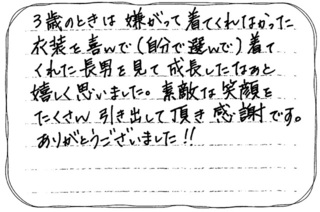 3歳のときは嫌がって着てくれなかった
衣装を喜んで(自分で選んで)着て
くれた長男を見て成長したなぁと
嬉しく思いました。素敵な笑顔を
たくさん引き出して頂き感謝です。
ありがとうございました!!